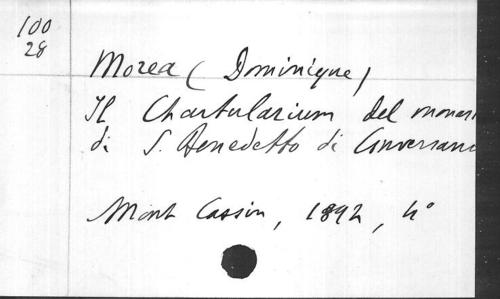 100
28
Morea (Dominique)
Il Chartularium del monas
di S. Benedetto di Conversano
Mont Cassin, 1892, 4°